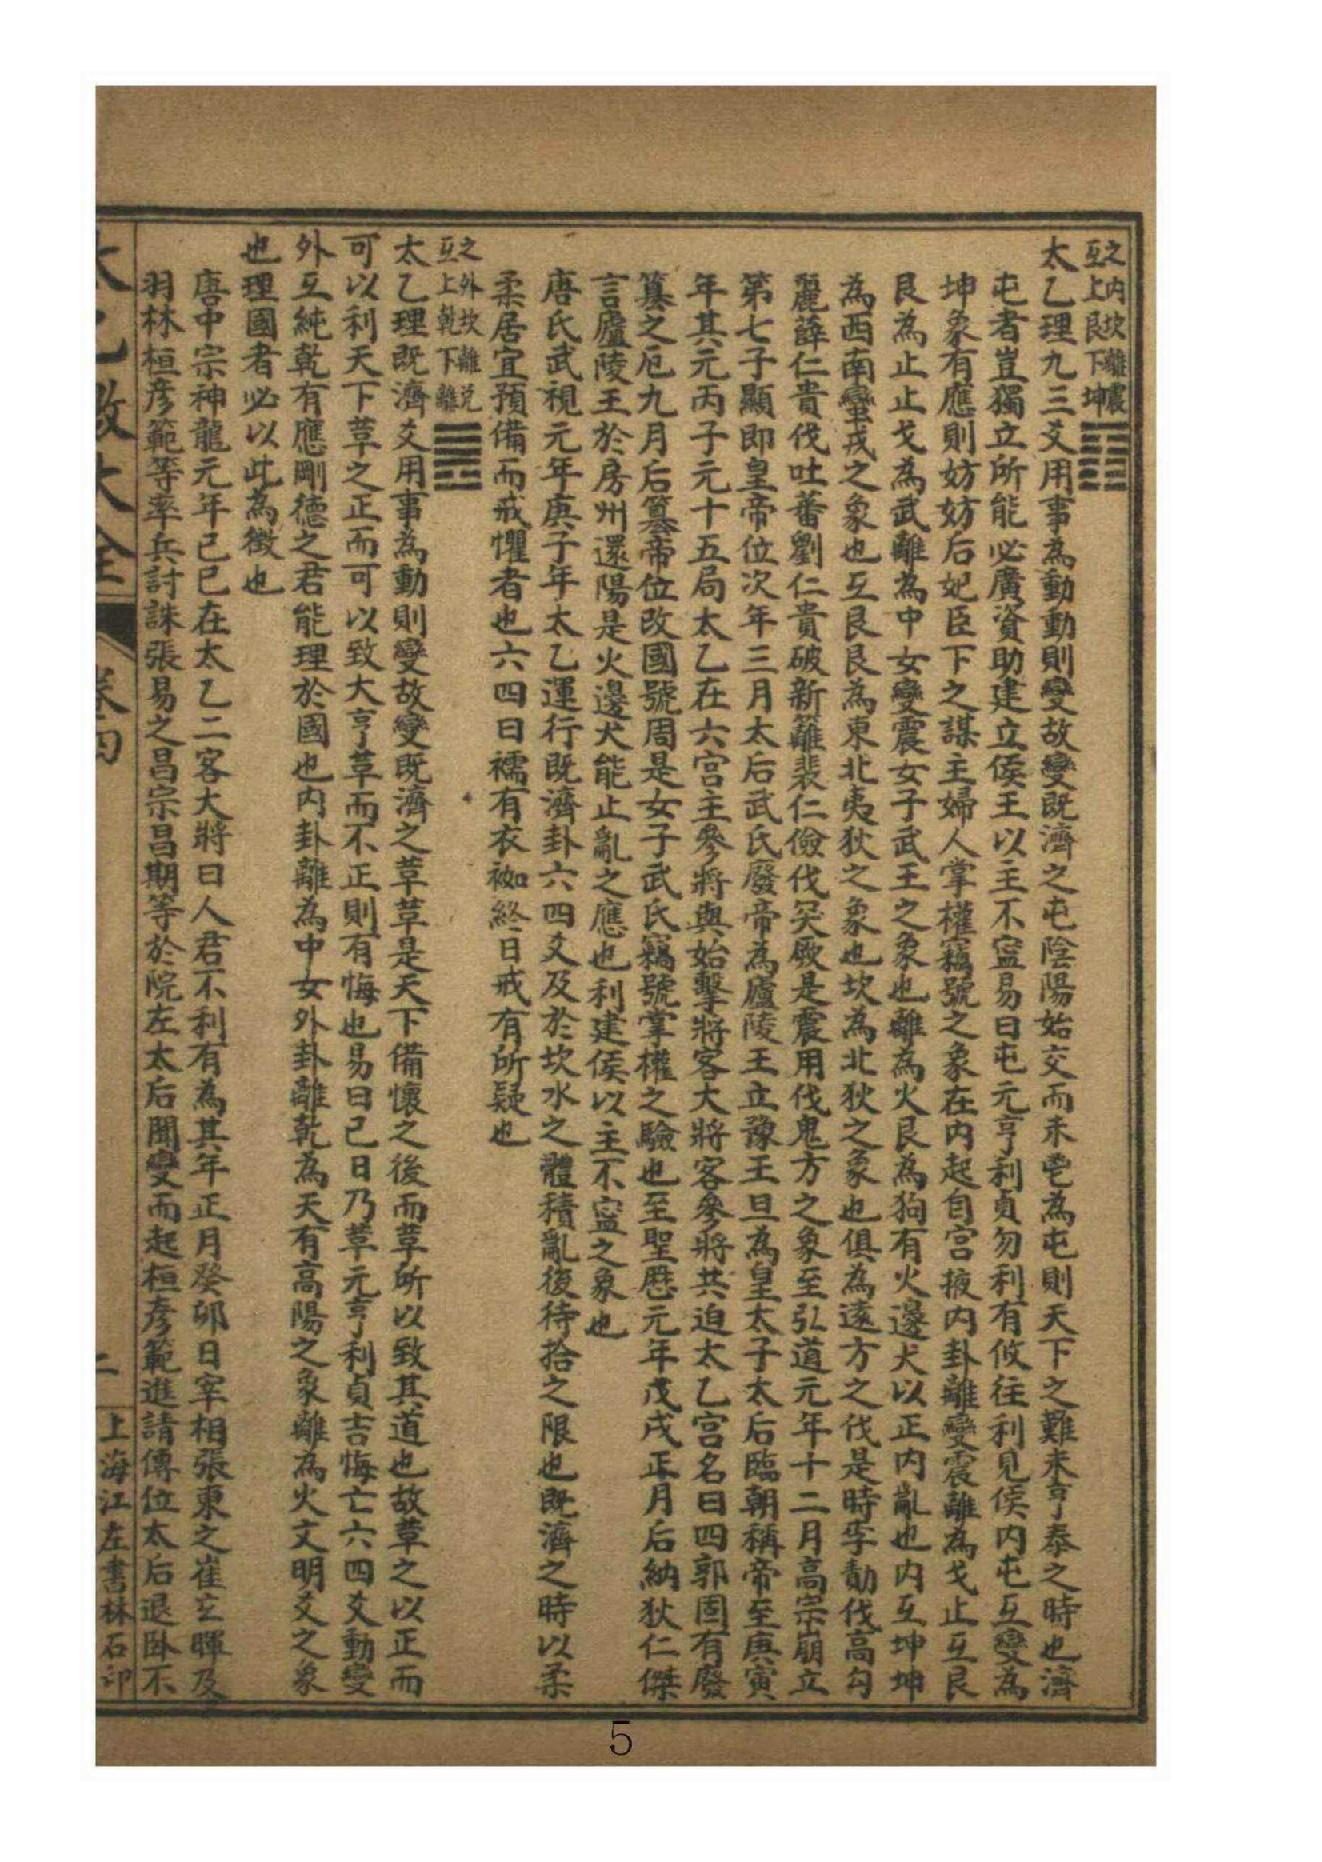 之內坎離震
互上艮下坤
太乙理九三爻用事為動動則變故變既濟之屯陰陽始交而未鬯為屯則天下之難未亨泰之時也濟
屯者豈獨立所能必廣資助建立侯王以主不寍易曰屯元亨利貞勿利有攸往利見侯內屯互變為
坤象有應則妨妨后妃臣下之謀主婦人掌權竊號之象在內起自宮掖內卦離變震離為戈止互艮
艮為止止戈為武離為中女變震女子武王之象也離為火艮為狗有火邊犬以正內亂也內互坤坤
為西南蠻戎之象也互艮艮為東北夷狄之象也坎為北狄之象也俱為遠方之伐是時李勣伐高勾
麗薛仁貴伐吐蕃劉仁貴破新籬裴仁儉伐突厥是震用伐鬼方之象至弘道元年十二月高宗崩立
第七子顯即皇帝位次年三月太后武氏廢帝為廬陵王立豫王旦為皇太子太后臨朝稱帝至庚寅
年其元丙子元十五局太乙在六宮主參將與始擊將客大將客參將共迫太乙宮名曰四郭固有廢
篡之厄九月后篡帝位改國號周是女子武氏竊號掌權之驗也至聖曆元年戊戌正月后納狄仁傑
言廬陵王於房州還陽是火邊犬能止亂之應也利建侯以主不寍之象也
唐氏武視元年庚子年太乙運行既濟卦六四爻及於坎水之體積亂後待拾之限也既濟之時以柔
柔居宜預備而戒懼者也六四曰襦有衣袽終日戒有所疑也
之外坎離兌
互上乾下離
太乙理既濟爻用事為動則變故變既濟之革革是天下備懷之後而革所以致其道也故革之以正而
可以利天下革之正而可以致大亨革而不正則有悔也易曰己日乃革元亨利貞吉悔亡六四爻動變
外互純乾有應剛德之君能理於國也內卦離為中女外卦離乾為天有高陽之象離為火文明爻之象
也理國者必以此為徵也
唐中宗神龍元年己巳在太乙二客大將曰人君不利有為其年正月癸卯日宰相張柬之崔玄暉及
羽林桓彥範等率兵討誅張易之昌宗昌期等於院左太后聞變而起桓彥範進請傳位太后退臥不
太乙數大全 卷四 二 上海江左書林石印
5